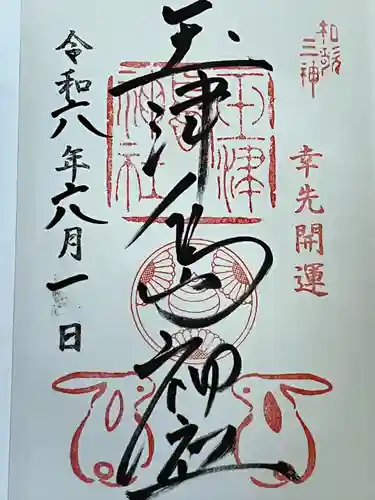 和歌
三神
幸先開運
玉津島神社
玉津島神社
令和六年六月一日